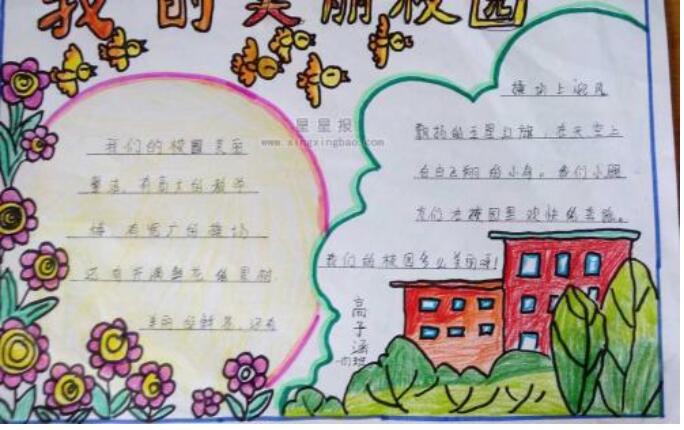 我的美丽校园
星星报
www.xingxingbao.com
我们的校园美丽
整洁。有高大的教学
楼,有宽广的操场
还有开满鲜花的
美丽的鲜花,还有
操场上
飘扬的五星红旗,在天空上
自由飞翔的小鸟。我们小朋
友们在校园里欢快的
我们的校园多么美丽呀!
高子涵
一四班